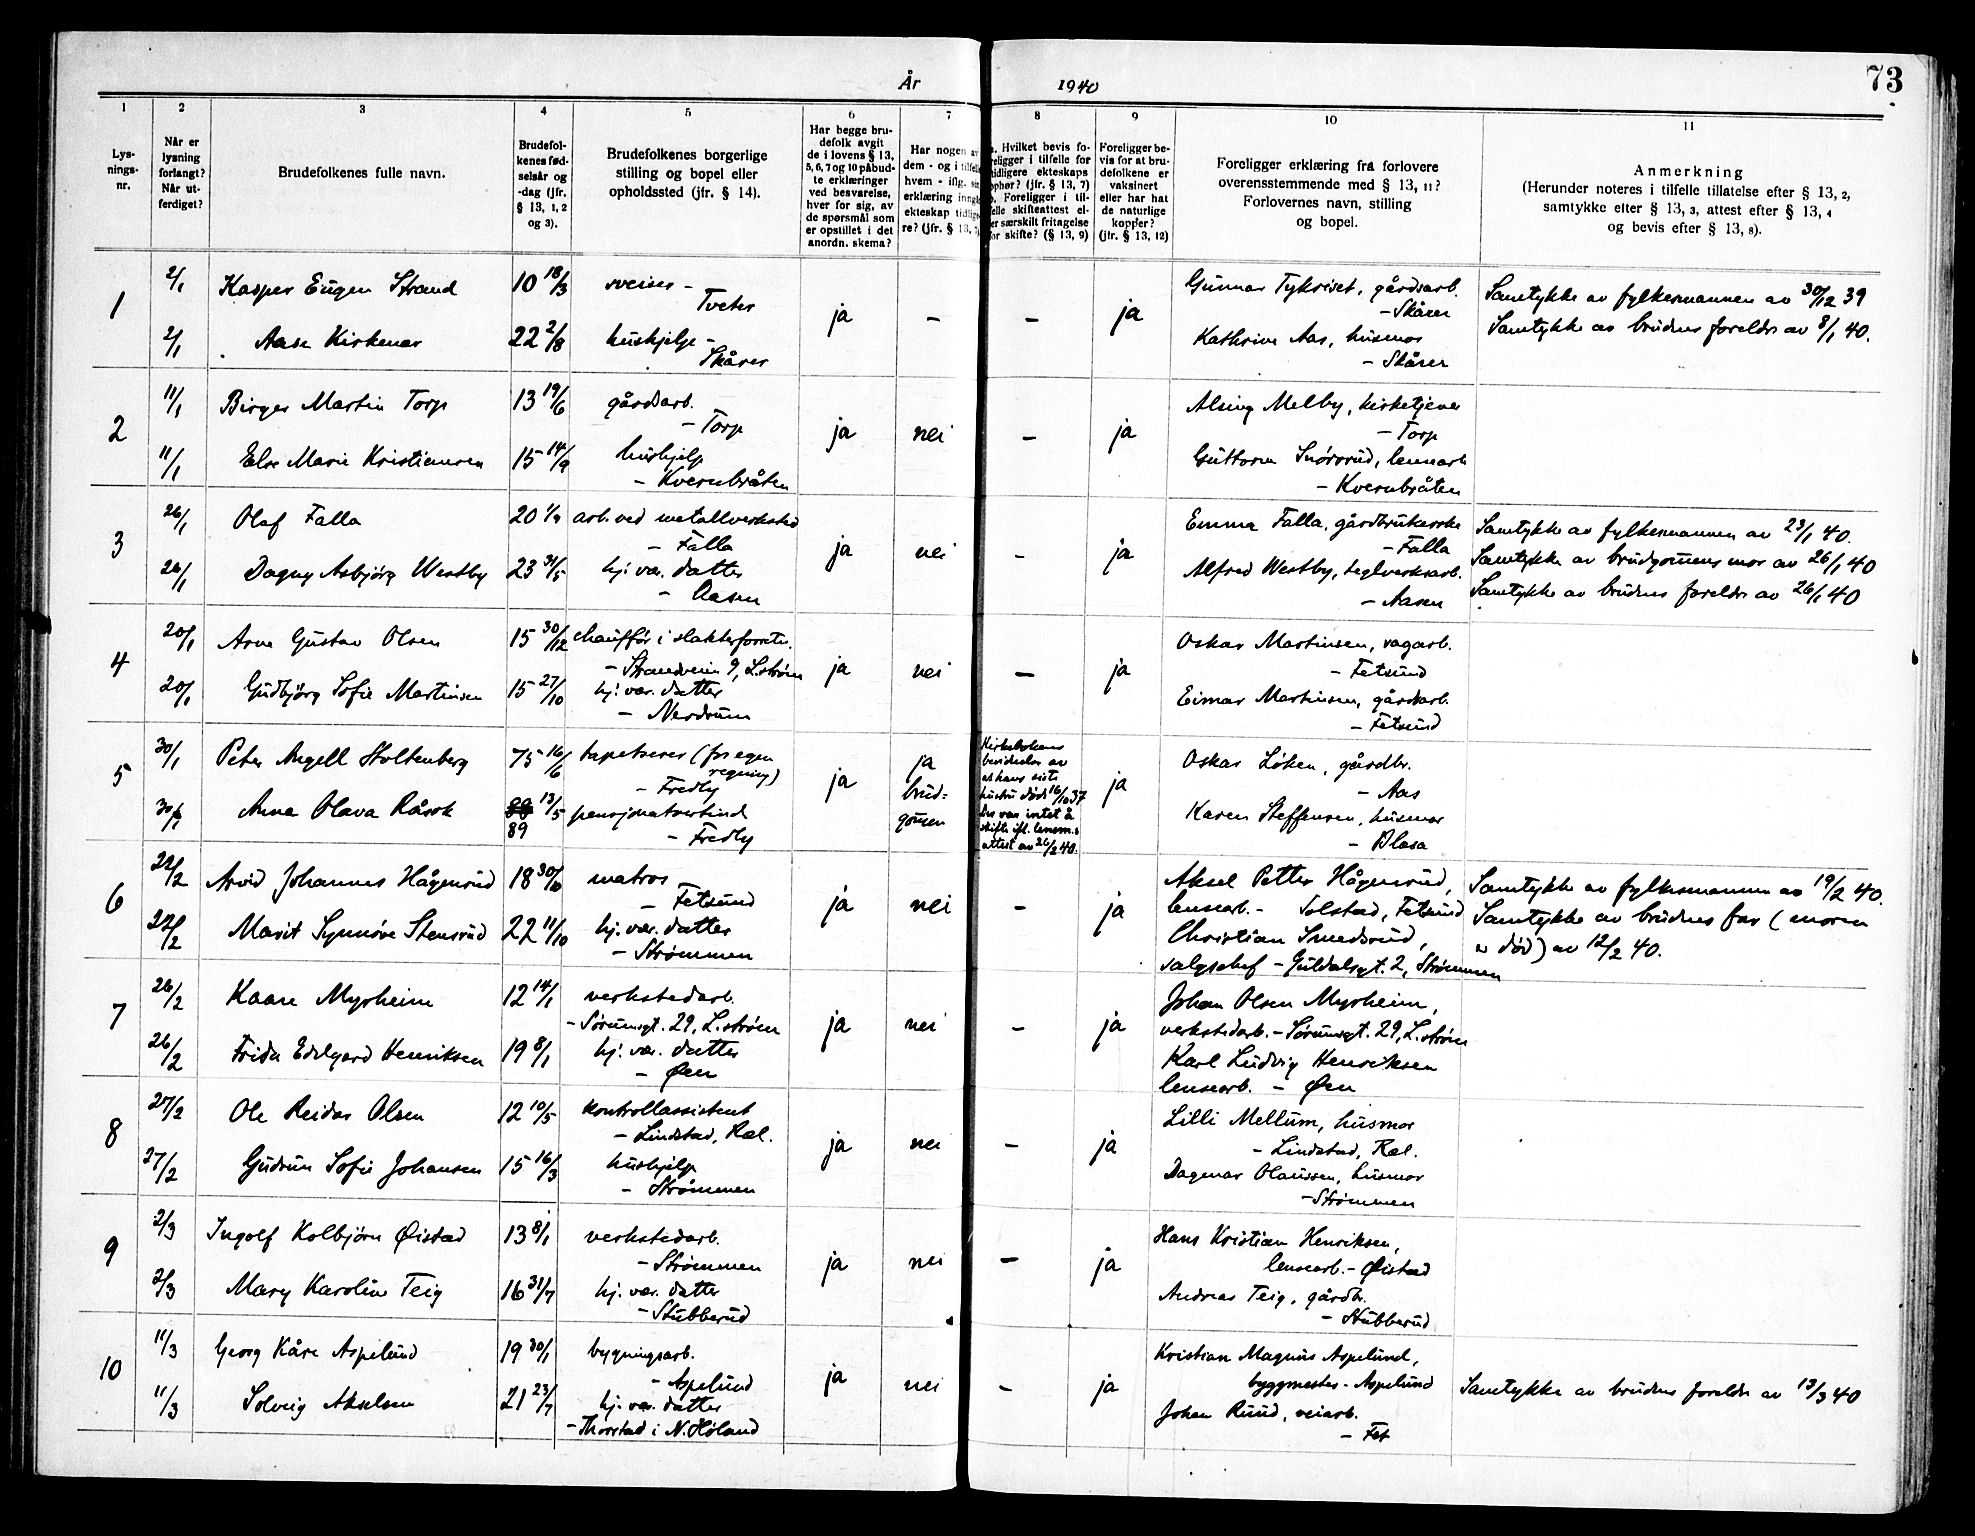 År 1940 73
1 2 3 4 5 6 7 8 9 10 11
Lys-
nings-
nr.
Når er
lysning
forlangt?
Når ut-
ferdiget?
Brudefolkenes fulle navn.
Brudefol-
kenes fød-
selsår og
-dag (jfr.
§ 13, 1, 2
og 3).
Brudefolkenes borgerlige
stilling og bopel eller
opholdssted (jfr. § 14).
Har begge bru-
defolk avgit
de i lovens § 13,
5, 6, 7 og 10 påbud-
te erklæringer
ved besvarelse,
hver for sig, av
de spørsmål som
er opstillet i det
anordn. skema?
Har nogen av
dem - og i tilfelle
hvem - iflg. sin
erklæring inngått
ekteskap tidlige-
re? (jfr. § 13, 7)
Hvilket bevis fo-
religger i tilfelle for
tidligere ekteskaps
ophør? (jfr. § 13, 7)
Foreligger i til-
felle skifteattest el-
ler særskilt fritagelse
for skifte? (§ 13, 9)
Foreligger be-
vis for at bru-
defolkene er
vaksinert
eller har hat
de naturlige
kopper?
(jfr. § 13, 12)
Foreligger erklæring fra forlovere
overensstemmende med § 13, 11?
Forlovernes navn, stilling
og bopel.
Anmerkning
(Herunder noteres i tilfelle tillatelse efter § 13, 2,
samtykke efter § 13, 3, attest efter § 13, 4
og bevis efter § 13, 8).
1 2/1 Kasper Eugen Strand 10 18/3 sveiser -
Tveter
ja - - ja
Gunnar Tykriset, gårdsarb.
- Skårer
Samtykke av fylkesmannen av 30/12 39
2/1 Aase Kirkenar 22 2/8 hushjelp -
Skårer
Kathrine Aas, husmor
- Skårer
Samtykke av brudens foreldre av 8/1 40.
2 11/1 Birger Martin Torp 13 19/6 gårdsarb.
- Torp
ja nei - ja
Alsing Melby, kirketjener
- Torp
11/1 Else Marie Kristiansen 15 14/9 hushjelp
- Kvernbråten
Guttorm Snørsrud, lensearb.
- Kvernbråten
3 26/1 Olaf Falla 20 1/9 arb. ved metallverksted
- Falla
ja nei - ja
Emma Falla, gårdbrukerske
- Falla
Samtykke av fylkesmannen av 23/1 40.
26/1 Dagny Asbjørg Westby 23 31/5 hj. vær. datter
- Aasen
Alfred Westby, teglverksarb.
- Aasen
Samtykke av brudgommens mor av 26/1 40
Samtykke av brudens foreldre av 26/1 40
4 20/1 Arne Gustav Olsen 15 30/12 chauffør i slakterforretn.
- Strandveien 9, L.strøm
ja nei - ja
Oskar Martinsen, sagarb.
- Fetsund
20/1 Gudbjørg Sofie Martinsen 15 27/10 hj. vær. datter
- Nerdrum
Eimar Martinsen, gårdsarb.
- Fetsund
5 30/1 Peter Angell Stoltenberg 75 16/6 tapetserer (for egen
regning)
- Fredly
ja ja
brud-
gommen
Kirkebokens
bevidnelse av
at hans siste
hustru døde 16/10 37
Der var intet å
skifte ifl. lensm.s
attest av 26/2 40.
ja
Oskar Løken, gårdbr.
- Aas
30/1 Anna Olava Råsok 13/5
89
pensjonatvertinne
- Fredly
Karen Steffensen, husmor
- Blasa
6 22/2 Arvid Johannes Hågensrud 18 30/10 matros
- Fetsund
ja nei - ja
Aksel Petter Hågensrud,
lensearb. - Solstad, Fetsund
Samtykke av fylkesmannen av 19/2 40.
22/2 Marit Synnøve Stensrud 22 11/10 hj. vær. datter
- Strømmen
Christian Smedsrud,
salgschef - Guldalsgt. 2, Strømmen
Samtykke av brudens far (moren
er død) av 12/2 40.
7 26/2 Kaare Myrheim 12 14/1 verkstedarb.
- Sørumsgt. 29, L.strøm
ja nei - ja
Johan Olsen Myrheim,
verkstedarb. - Sørumsgt. 29, L.strøm
26/2 Frida Edelgard Henriksen 19 8/1 hj. vær. datter
- Øen
Karl Ludvig Henriksen
lensearb. - Øen
8 27/2 Ole Reidar Olsen 12 10/5 kontrollassistent
- Lindstad, Ræl.
ja nei - ja
Lilli Mellum, husmor
- Lindstad, Ræl.
27/2 Gudrun Sofie Johansen 15 16/3 hushjelp
- Strømmen
Dagmar Olaussen, husmor
- Strømmen
9 2/3 Ingolf Kolbjørn Øistad 13 8/1 verkstedarb.
- Strømmen
ja nei - ja
Hans Kristian Henriksen,
lensearb. - Øistad
2/3 Mary Karoline Teig 16 31/7 hj. vær. datter
- Stubberud
Andreas Teig, gårdbr.
- Stubberud
10 11/3 Georg Kåre Aspelund 19 30/1 bygningsarb.
- Aspelund
ja nei - ja
Kristian Magnus Aspelund,
byggmester - Aspelund
11/3 Solveig Akselsen 21 23/7 hj. vær. datter
- Thorstad i N. Høland
Johan Ruud, veiarb.
- Fet
Samtykke av brudens foreldre av 13/3 40